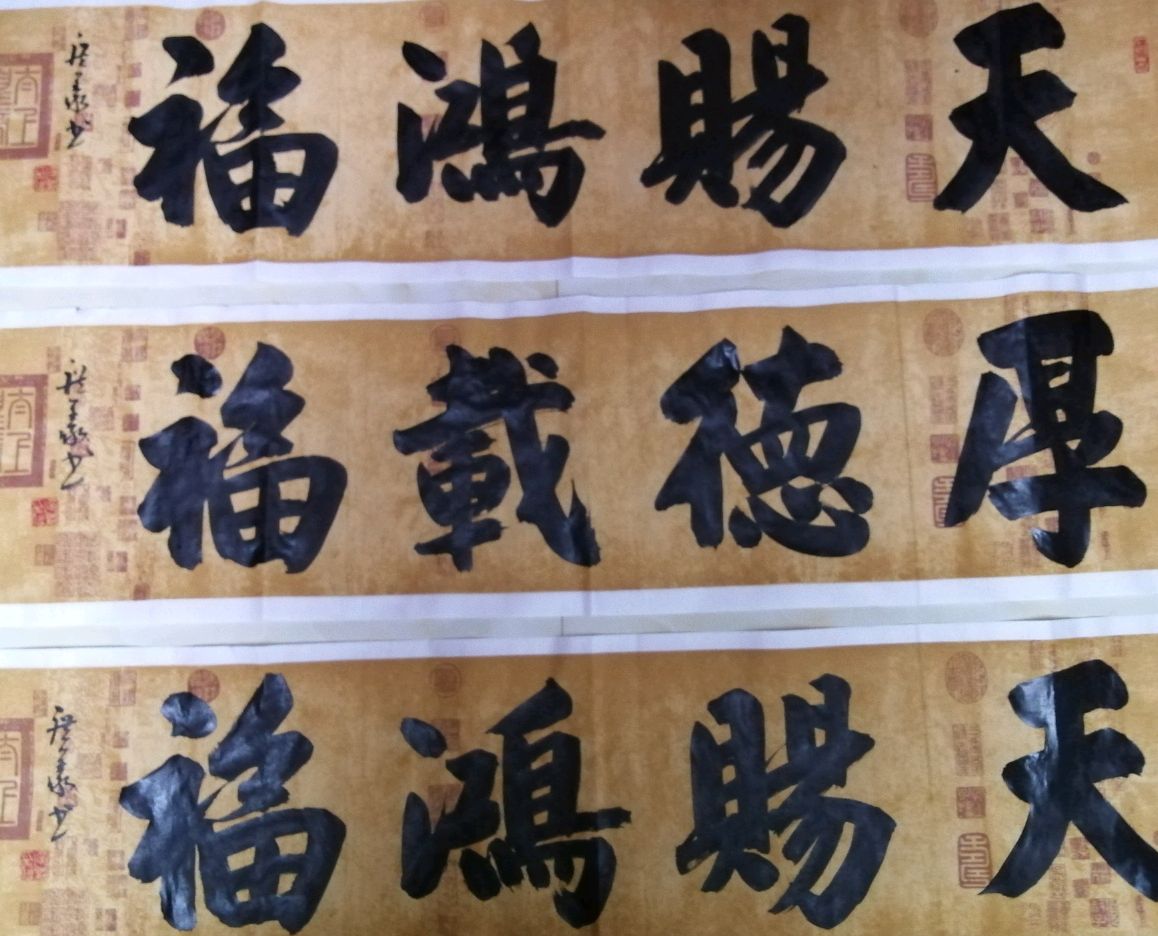 天賜鴻福
厚德載福
天賜鴻福